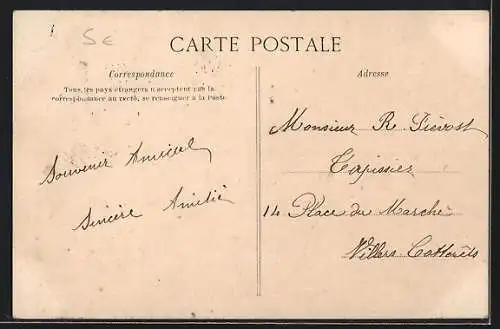 5€
CARTE POSTALE
Correspondance
Tous les pays étrangers n'acceptent pas la
correspondance au recto, se renseigner à la Poste
Souvenir Amical
Sincère Amitié
Adresse
Monsieur R. Piévost
Tapissier
14 Place du Marché
Villers-Cotterêts